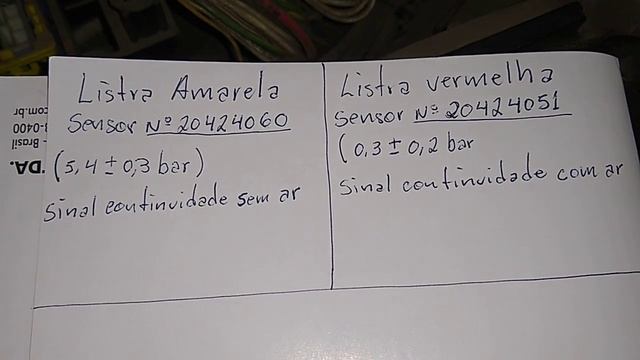 Listra Amarela
Sensor Nº 20424060
(5,4 ± 0,3 bar)
Sinal continuidade sem ar
Listra vermelha
Sensor Nº 20424051
(0,3 ± 0,2 bar
Sinal continuidade com ar
com.br
3-0400
- Brasil
DA.